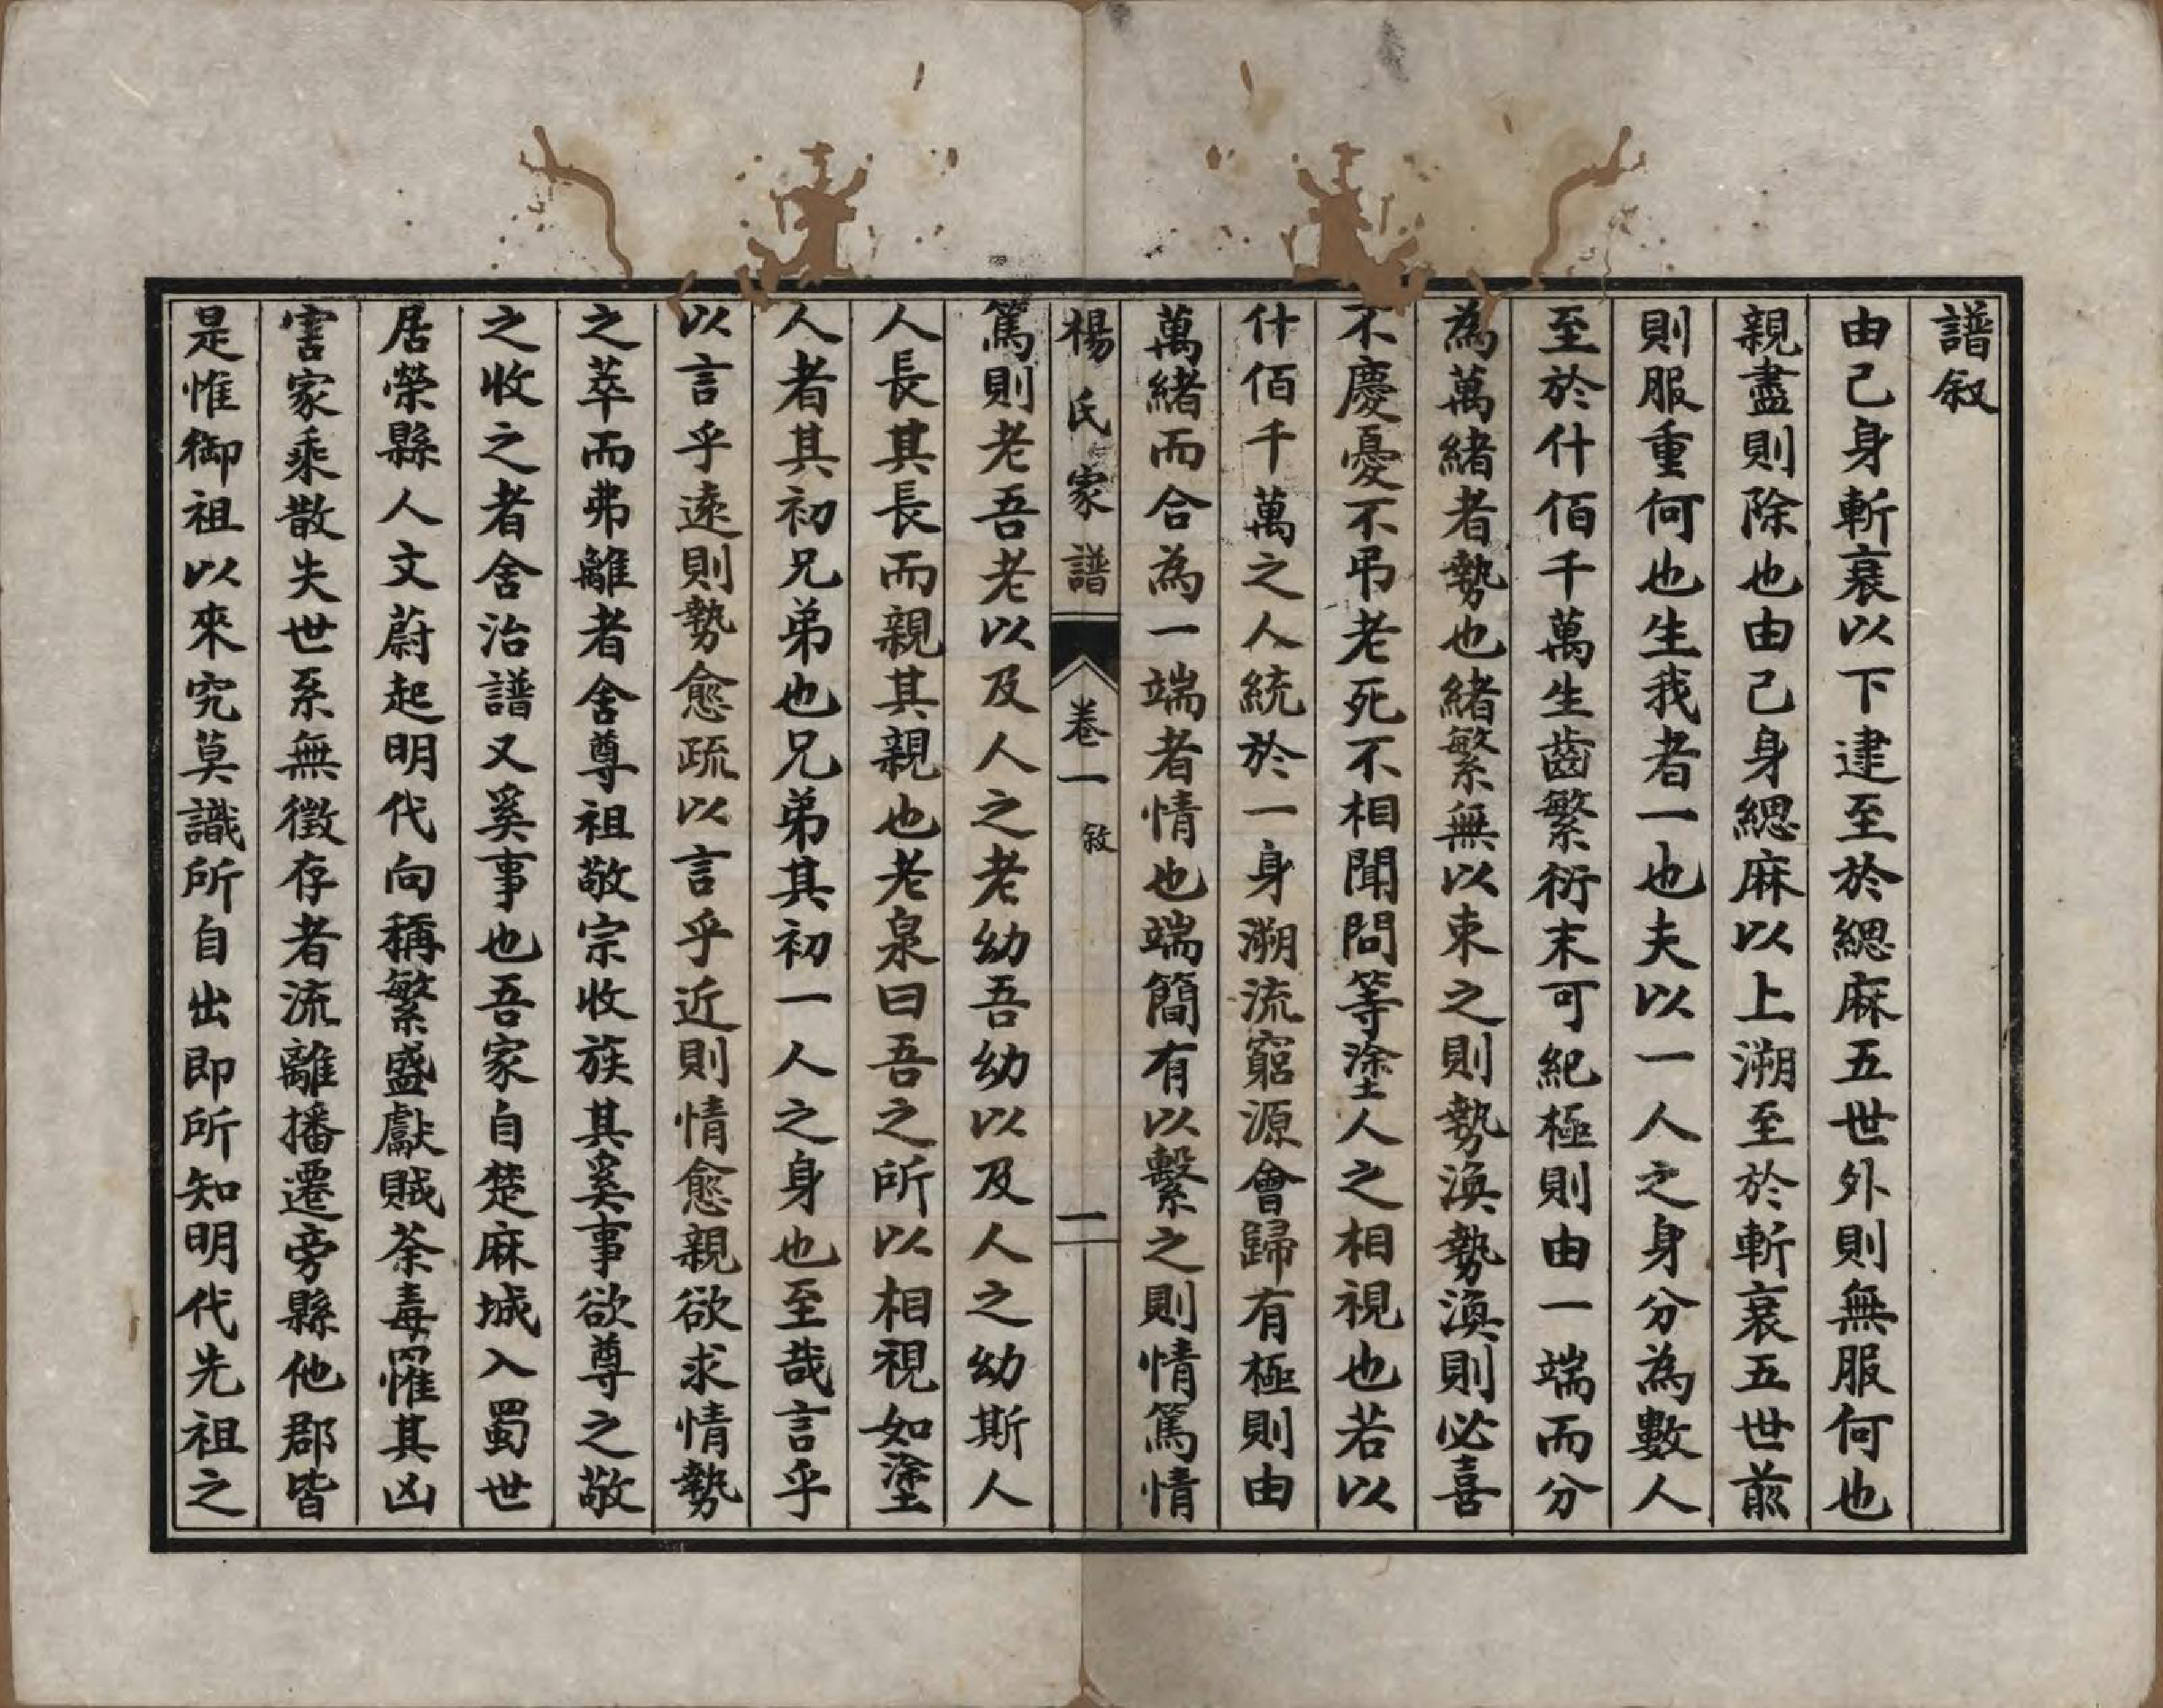 譜敘
由己身斬衰以下逮至於緦麻五世外則無服何也
親盡則除也由己身緦麻以上溯至於斬衰五世前
則服重何也生我者一也夫以一人之身分為數人
至於什佰千萬生齒繁衍末可紀極則由一端而分
為萬緒者勢也緒繁無以束之則勢渙勢渙則必喜
不慶憂不弔老死不相聞問等塗人之相視也若以
什佰千萬之人統於一身溯流窮源會歸有極則由
萬緒而合為一端者情也端簡有以繫之則情篤情
楊氏家譜 卷一 敘 一
篤則老吾老以及人之老幼吾幼以及人之幼斯人
人長其長而親其親也老泉曰吾之所以相視如塗
人者其初兄弟也兄弟其初一人之身也至哉言乎
以言乎遠則勢愈疏以言乎近則情愈親欲求情勢
之萃而弗離者舍尊祖敬宗收族其奚事欲尊之敬
之收之者舍治譜又奚事也吾家自楚麻城入蜀世
居榮縣人文蔚起明代向稱繁盛獻賊荼毒罹其凶
害家乘散失世系無徵存者流離播遷旁縣他郡皆
是惟御祖以來究莫識所自出即所知明代先祖之